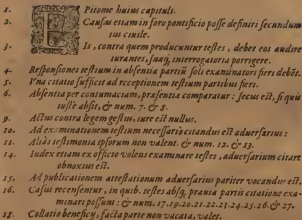 1. EPitome huius capituli.
2. Causas etiam in foro pontificio posse definiri secundum
ius ciuile.
3. Is, contra quem producuntur testes, debet eos audire
iurantes, suaq; interrogatoria porrigere.
4. Responsiones testium in absentia partiū soli examinatori fieri debēt.
5. Vna citatio sufficit ad receptionem testium partibus fieri.
6. Absentia per contumaciam, præsentia comparatur: secus est, si quis
iustè absit, & num. 7. & 8.
9. Actus contra legem gestus, iure est nullus.
10. Ad examinationem testium necessariò citandus est aduersarius:
11. Alias testimonia ipsorum non valent. & num. 12. & 13.
14. Iudex etiam ex officio volens examinare testes, aduersarium citare
obnoxius est.
15. Ad publicationem attestationum aduersarius pariter vocandus est.
16. Casus recensentur, in quib. testes absq; prauia partis citatione exa-
minari possunt: & num. 17. 19. 20. 21. 22. 23. 24. 25. 26. & 27.
18. Collatio beneficij, facta parte non vocata, valet.